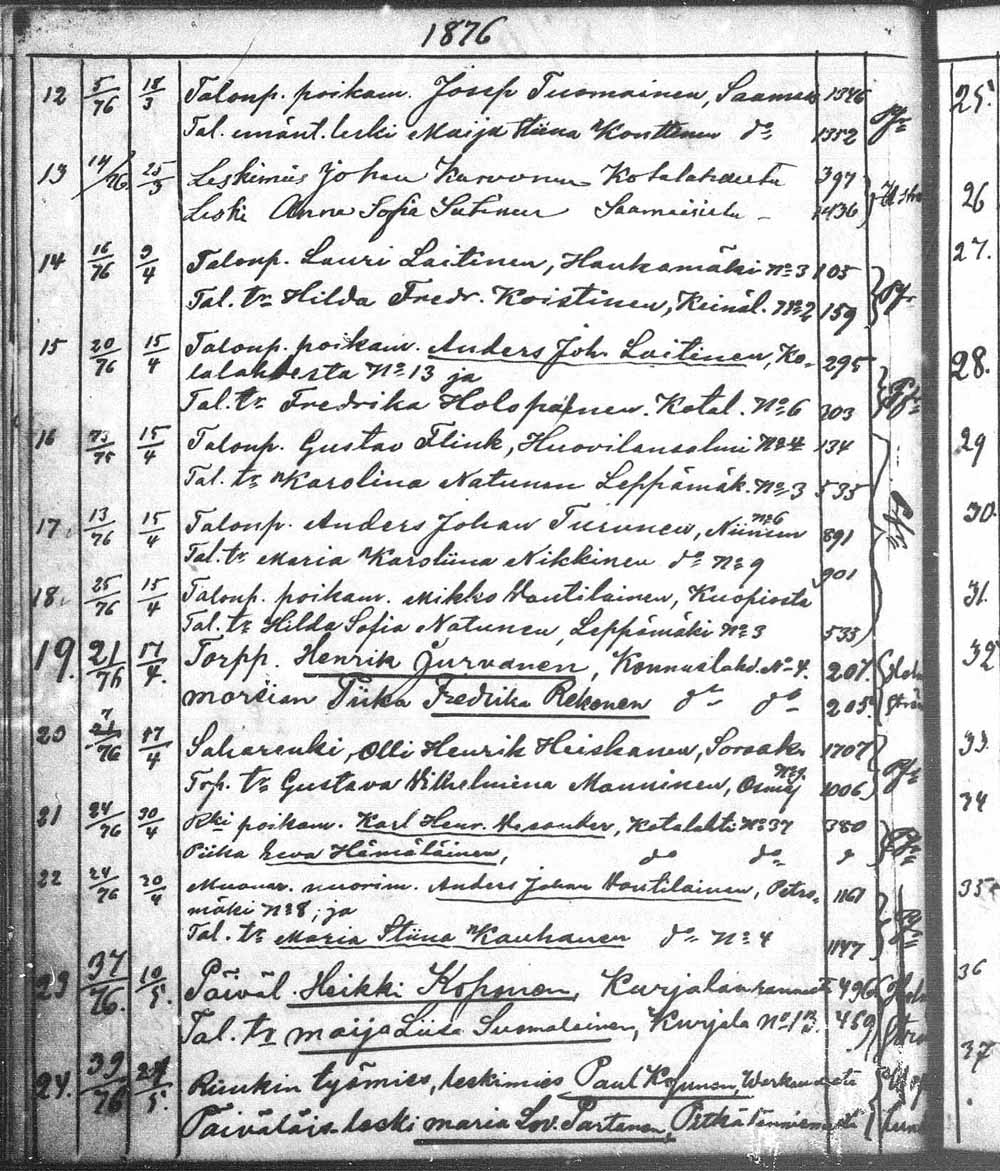 1876
12 5/76 18/3 Talonp. poikam. Josep Tuomainen, Saamais 1346
Tal. emänt. leski Maija Stiina Konttinen do 1352
13 14/76 25/3 Leskimies Johan Karvonen Kotalahdesta 397
Leski Anna Sofia Sutinen Saamaisista 1436
14 16/76 9/4 Talonp. Lauri Laitinen, Haukamäki No 3 105
Tal. tr Hilda Fredr. Koistinen, Keinäl. No 2 159
15 20/76 15/4 Talonp. poikam. Anders Joh. Laitinen, Ko-
talahdesta No 13 ja 295
Tal. tr Fredrika Holopainen. Kotal. No 6 303
16 73/75 15/4 Talonp. Gustav Flink, Huovilansalmi No 4 134
Tal. tr Karolina Natunen Leppämäk. No 3 535
17 13/76 15/4 Talonp. Anders Johan Turunen, Niinim No 6 891
Tal. tr Maria Karoliina Nikkinen do No 9 901
18 25/76 15/4 Talonp. poikam. Mikko Vantilainen, Kuopiosta
Tal. tr Hilda Sofia Natunen, Leppämäki No 3 535
19. 21/76 17/4. Torpp. Henrik Jurvanen, Konnuslahd. No 4. 207.
morsian Piika Fredrika Rekonen do do 205.
20 7/76 17/4 Olli Henrik Heiskanen, Sorsak. 1707
Torp. tr Gustava Wilhelmiina Manninen, Osmaj No 9. 1006
21 24/76 30/4 Rki poikam. Karl Henr. Kotalahti No 37 380
Piika Eeva Hämäläinen, do do
22 24/76 30/4 Muonar. nuorim. Anders Johan Vantilainen, Petro- 1161
mäki No 8, ja
Tal. tr Maria Stiina Kauhanen do No 4 1147
23 37/76. 10/5. Päiväl. Heikki Koponen, Kurjalanrannast 496
Tal. tr Maija Liisa Suomalainen, Kurjala No 13. 459
24. 39/76 5. Ruukin työmies, leskimies Paul Kojonen, Warkaudesta
Päiväläis. leski Maria Lov. Partanen,
25.
26
27.
28.
29
30.
31.
32
33.
34
35
36
37